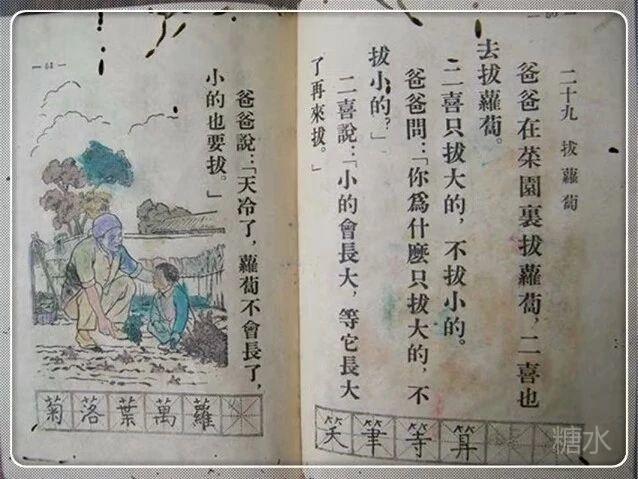 二十九 拔蘿蔔
爸爸在菜園裏拔蘿蔔，二喜也
去拔蘿蔔。
二喜只拔大的，不拔小的。
爸爸問：「你爲什麼只拔大的，不
拔小的？」
二喜說：「小的會長大，等它長大
了再來拔。」
算等筆笑
爸爸說：「天冷了，蘿蔔不會長了，
小的也要拔。」
蘿萬葉落菊
糖水